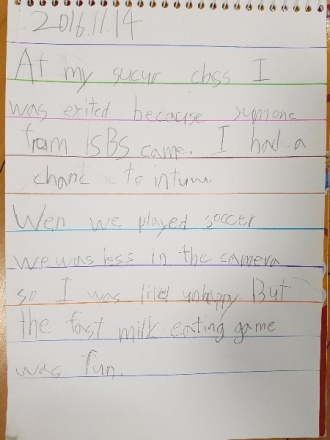 2016.11.14
At my sucur class I
was exited because sumone
from SBS came. I had a
chanc to
Wen we played soccer
we was less in the camera
so I was unhappy. But
the fast milk eating game
was fun.